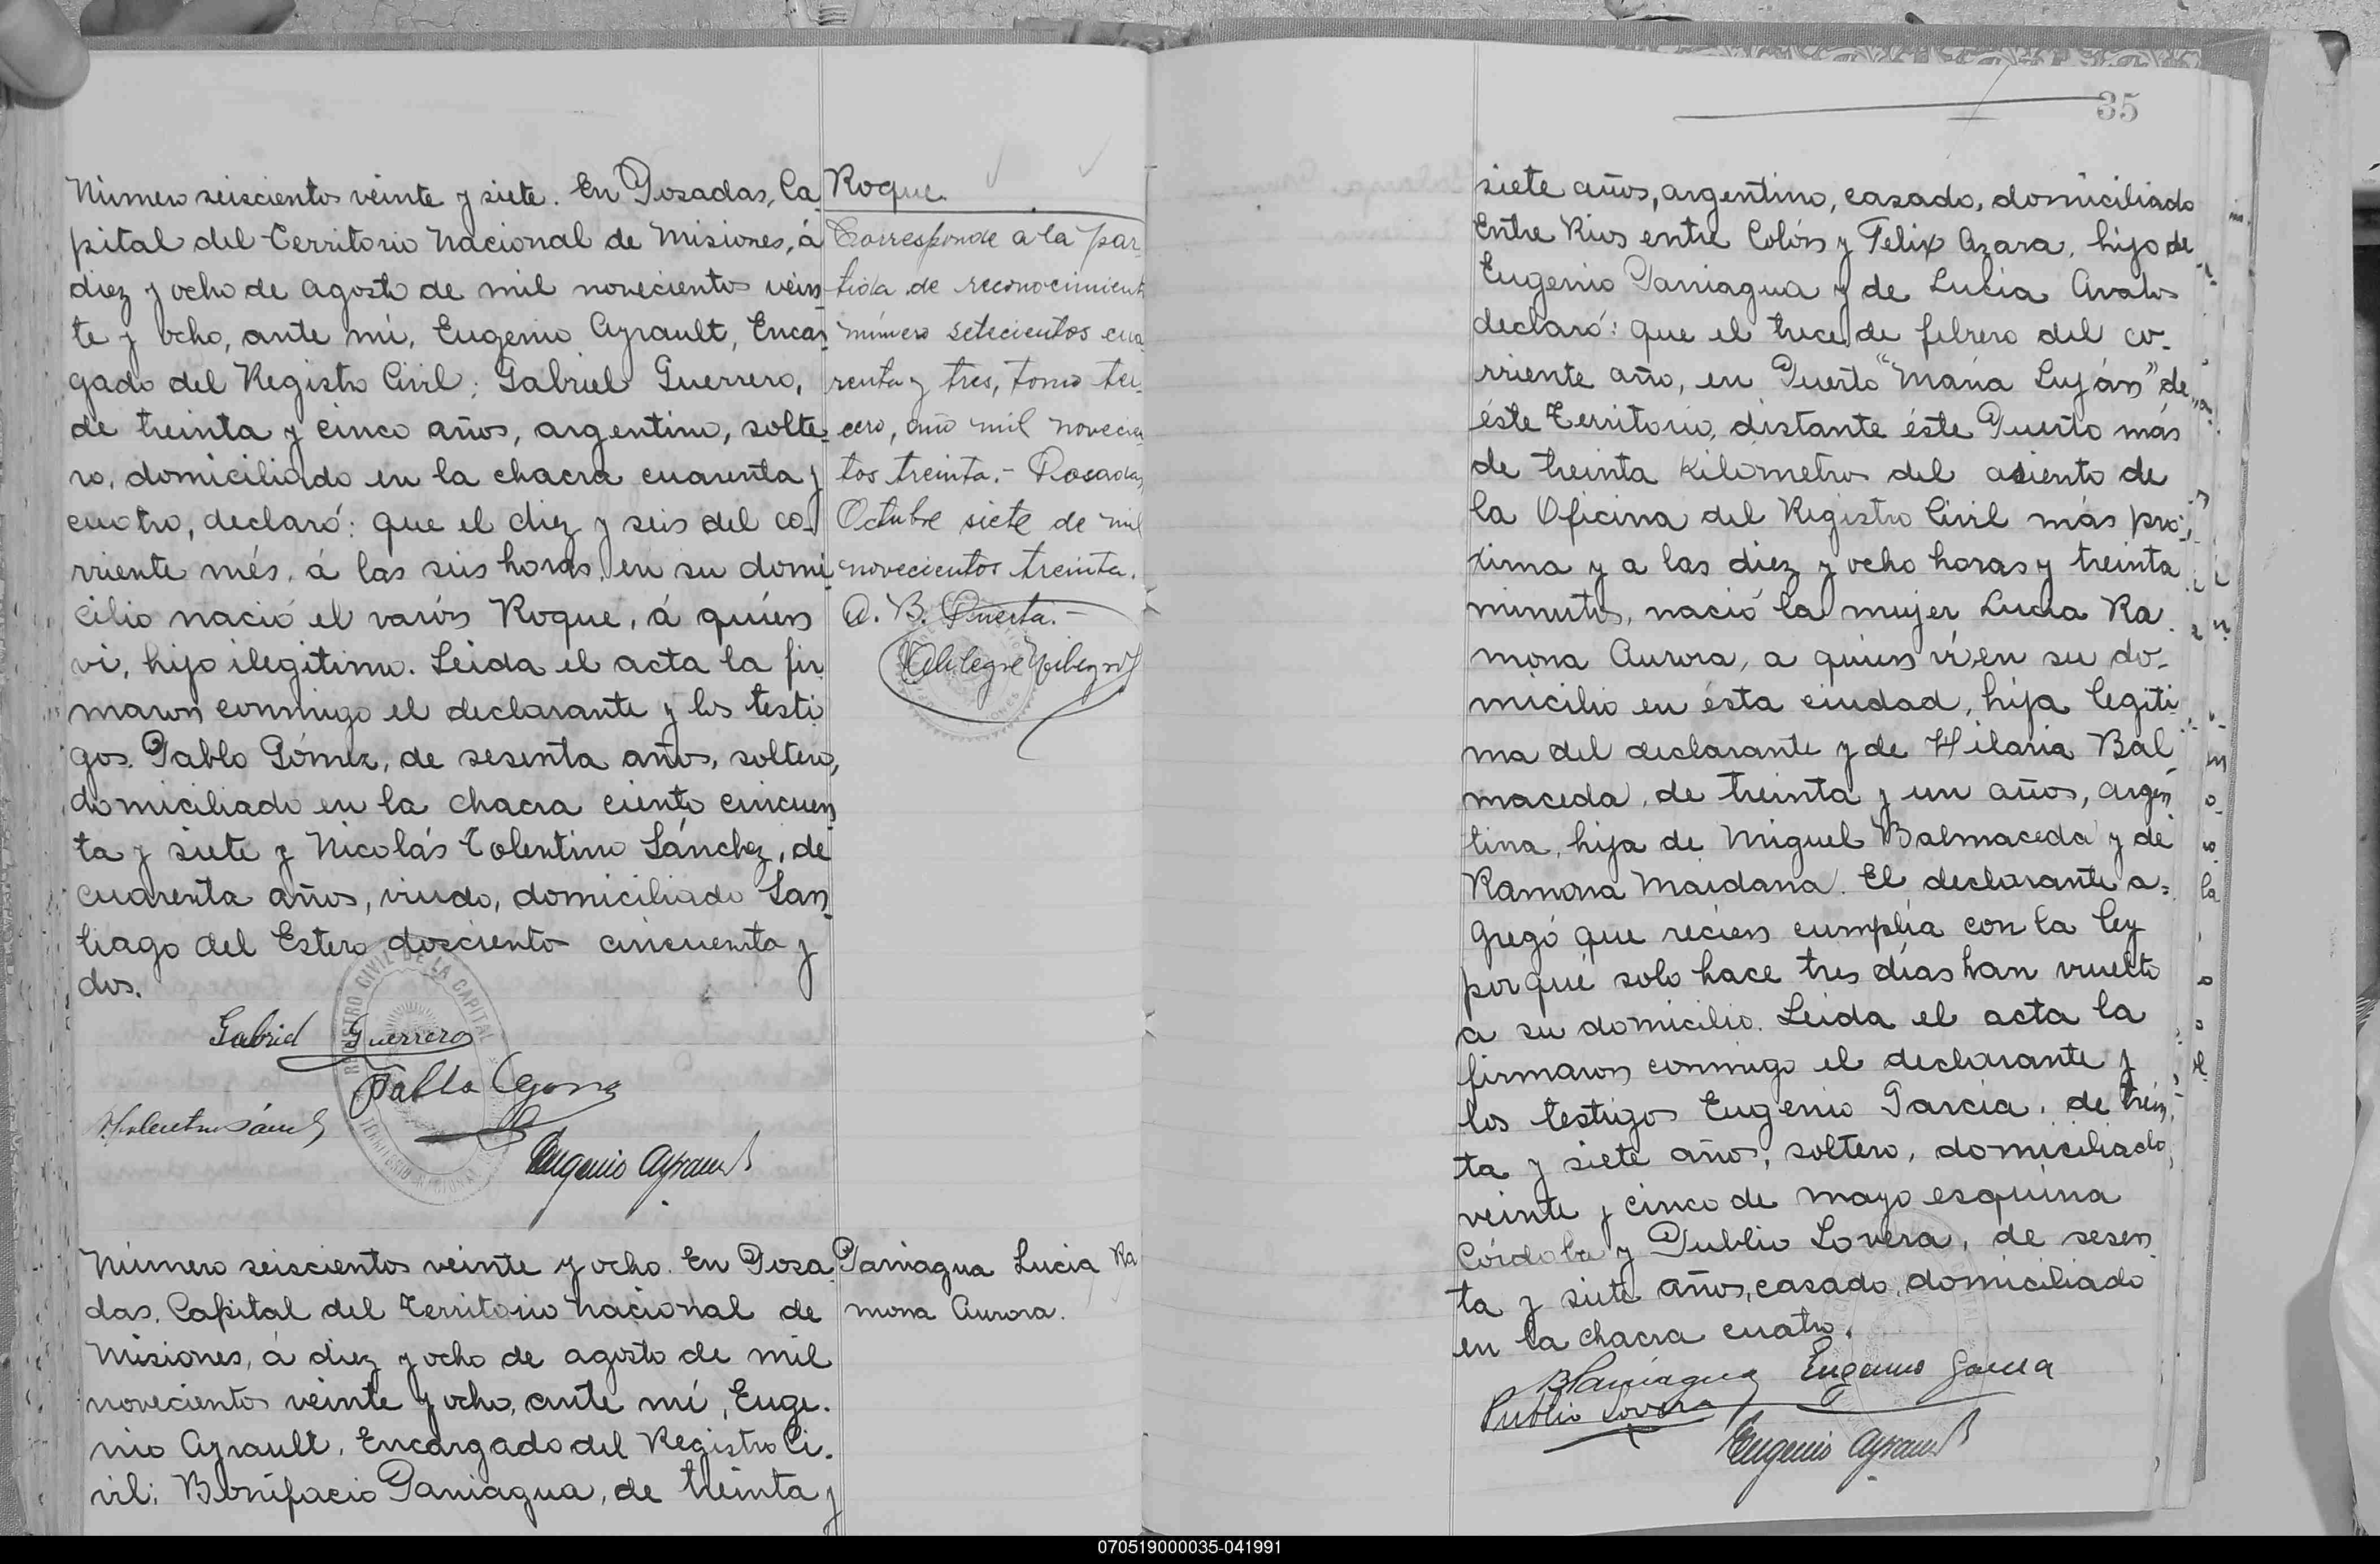 Número seiscientos veinte y siete. En Posadas, Ca
pital del Territorio Nacional de Misiones, á
diez y ocho de agosto de mil novecientos vein
te y ocho, ante mí, Eugenio Ayrault, Encar
gado del Registro Civil; Gabriel Guerrero,
de treinta y cinco años, argentino, solte
ro, domiciliado en la chacra cuarenta y
cuatro, declaró: que el diez y seis del co-
rriente més, á las seis horas, en su domi
cilio nació el varón Roque, á quién
vi, hijo ilegitimo. Leida el acta la fir
maron conmigo el declarante y los testi
gos Pablo Gómez, de sesenta años, soltero,
domiciliado en la chacra ciento cincuen
ta y siete y Nicolás Tolentino Sánchez, de
cuarenta años, viudo, domiciliado San
tiago del Estero doscientos cincuenta y
dos.
Gabriel Guerrero
Pablo
Eugenio Ayrault
REGISTRO CIVIL DE LA CAPITAL
TERRITORIO NACIONAL
Roque
Corresponde a la par-
tida de reconocimient
número setecientos cua
renta y tres, tomo ter-
cero, año mil novecien
tos treinta.- Posadas,
Octubre siete de mil
novecientos treinta.
A. B. Puerta.-
Número seiscientos veinte y ocho. En Posa
das, Capital del Territorio Nacional de
Misiones, á diez y ocho de agosto de mil
novecientos veinte y ocho, ante mí, Euge-
nio Ayrault, Encargado del Registro Ci-
vil; Bonifacio Paniagua, de treinta y
Paniagua Lucia Ra
mona Aurora.
35
siete años, argentino, casado, domiciliado
Entre Rios entre Colón y Felix Azara, hijo de
Eugenio Paniagua y de Lucia Avalos
declaró: que el trece de febrero del co-
rriente año, en Puerto "Maria Luján" de
éste Territorio, distante éste Puerto más
de treinta kilometros del asiento de
la Oficina del Registro Civil más pró-
xima y a las diez y ocho horas y treinta
minutos, nació la mujer Lucia Ra
mona Aurora, a quien ví, en su do-
micilio en ésta ciudad, hija legiti
ma del declarante y de Hilaria Bal
maceda, de treinta y un años, argen
tina, hija de Miguel Balmaceda y de
Ramona Maidana. El declarante a-
gregó que recien cumplia con la ley
porqué solo hace tres días han vuelto
a su domicilio. Leida el acta la
firmaron conmigo el declarante y
los testigos Eugenio Garcia, de trein
ta y siete años, soltero, domiciliado
veinte y cinco de mayo esquina
Córdoba y Publio Lovera, de sesen
ta y siete años, casado, domiciliado
en la chacra cuatro.
B Paniagua Eugenio Garcia
Publio Lovera
Eugenio Ayrault
070519000035-041991